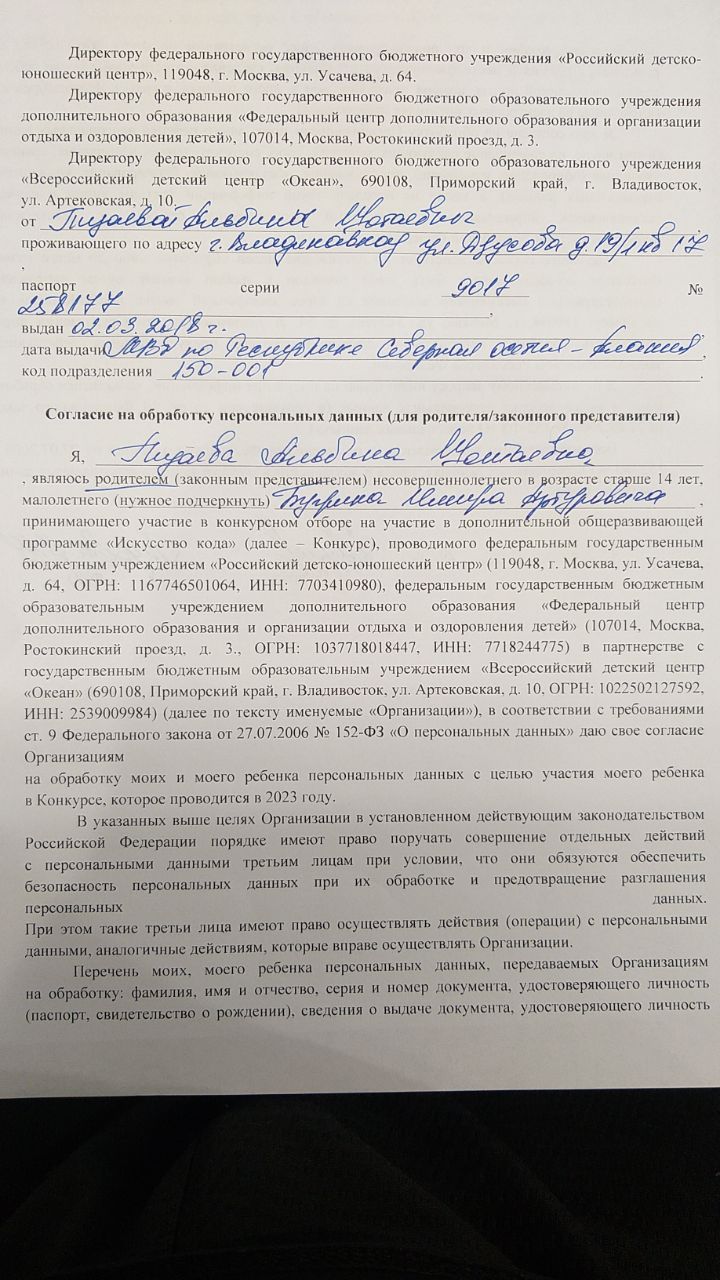 Директору федерального государственного бюджетного учреждения «Российский детско-
юношеский центр», 119048, г. Москва, ул. Усачева, д. 64.
Директору федерального государственного бюджетного образовательного учреждения
дополнительного образования «Федеральный центр дополнительного образования и организации
отдыха и оздоровления детей», 107014, Москва, Ростокинский проезд, д. 3.
Директору федерального государственного бюджетного образовательного учреждения
«Всероссийский детский центр «Океан», 690108, Приморский край, г. Владивосток,
ул. Артековская, д. 10.
от Альбины
проживающего по адресу г. Владикавказ ул. д. 19/1 кв 17
,
паспорт серии 9017 №
258177 ,
выдан 02.03.2018 г. ,
дата выдачи МВД по Республике Северная осетия - Алания ,
код подразделения 150-001 .
Согласие на обработку персональных данных (для родителя/законного представителя)
Я, Альбина
, являюсь родителем (законным представителем) несовершеннолетнего в возрасте старше 14 лет,
малолетнего (нужное подчеркнуть) Артуровича ,
принимающего участие в конкурсном отборе на участие в дополнительной общеразвивающей
программе «Искусство кода» (далее – Конкурс), проводимого федеральным государственным
бюджетным учреждением «Российский детско-юношеский центр» (119048, г. Москва, ул. Усачева,
д. 64, ОГРН: 1167746501064, ИНН: 7703410980), федеральным государственным бюджетным
образовательным учреждением дополнительного образования «Федеральный центр
дополнительного образования и организации отдыха и оздоровления детей» (107014, Москва,
Ростокинский проезд, д. 3., ОГРН: 1037718018447, ИНН: 7718244775) в партнерстве с
государственным бюджетным образовательным учреждением «Всероссийский детский центр
«Океан» (690108, Приморский край, г. Владивосток, ул. Артековская, д. 10, ОГРН: 1022502127592,
ИНН: 2539009984) (далее по тексту именуемые «Организации»), в соответствии с требованиями
ст. 9 Федерального закона от 27.07.2006 № 152-ФЗ «О персональных данных» даю свое согласие
Организациям
на обработку моих и моего ребенка персональных данных с целью участия моего ребенка
в Конкурсе, которое проводится в 2023 году.
В указанных выше целях Организации в установленном действующим законодательством
Российской Федерации порядке имеют право поручать совершение отдельных действий
с персональными данными третьим лицам при условии, что они обязуются обеспечить
безопасность персональных данных при их обработке и предотвращение разглашения
персональных данных.
При этом такие третьи лица имеют право осуществлять действия (операции) с персональными
данными, аналогичные действиям, которые вправе осуществлять Организации.
Перечень моих, моего ребенка персональных данных, передаваемых Организациям
на обработку: фамилия, имя и отчество, серия и номер документа, удостоверяющего личность
(паспорт, свидетельство о рождении), сведения о выдаче документа, удостоверяющего личность